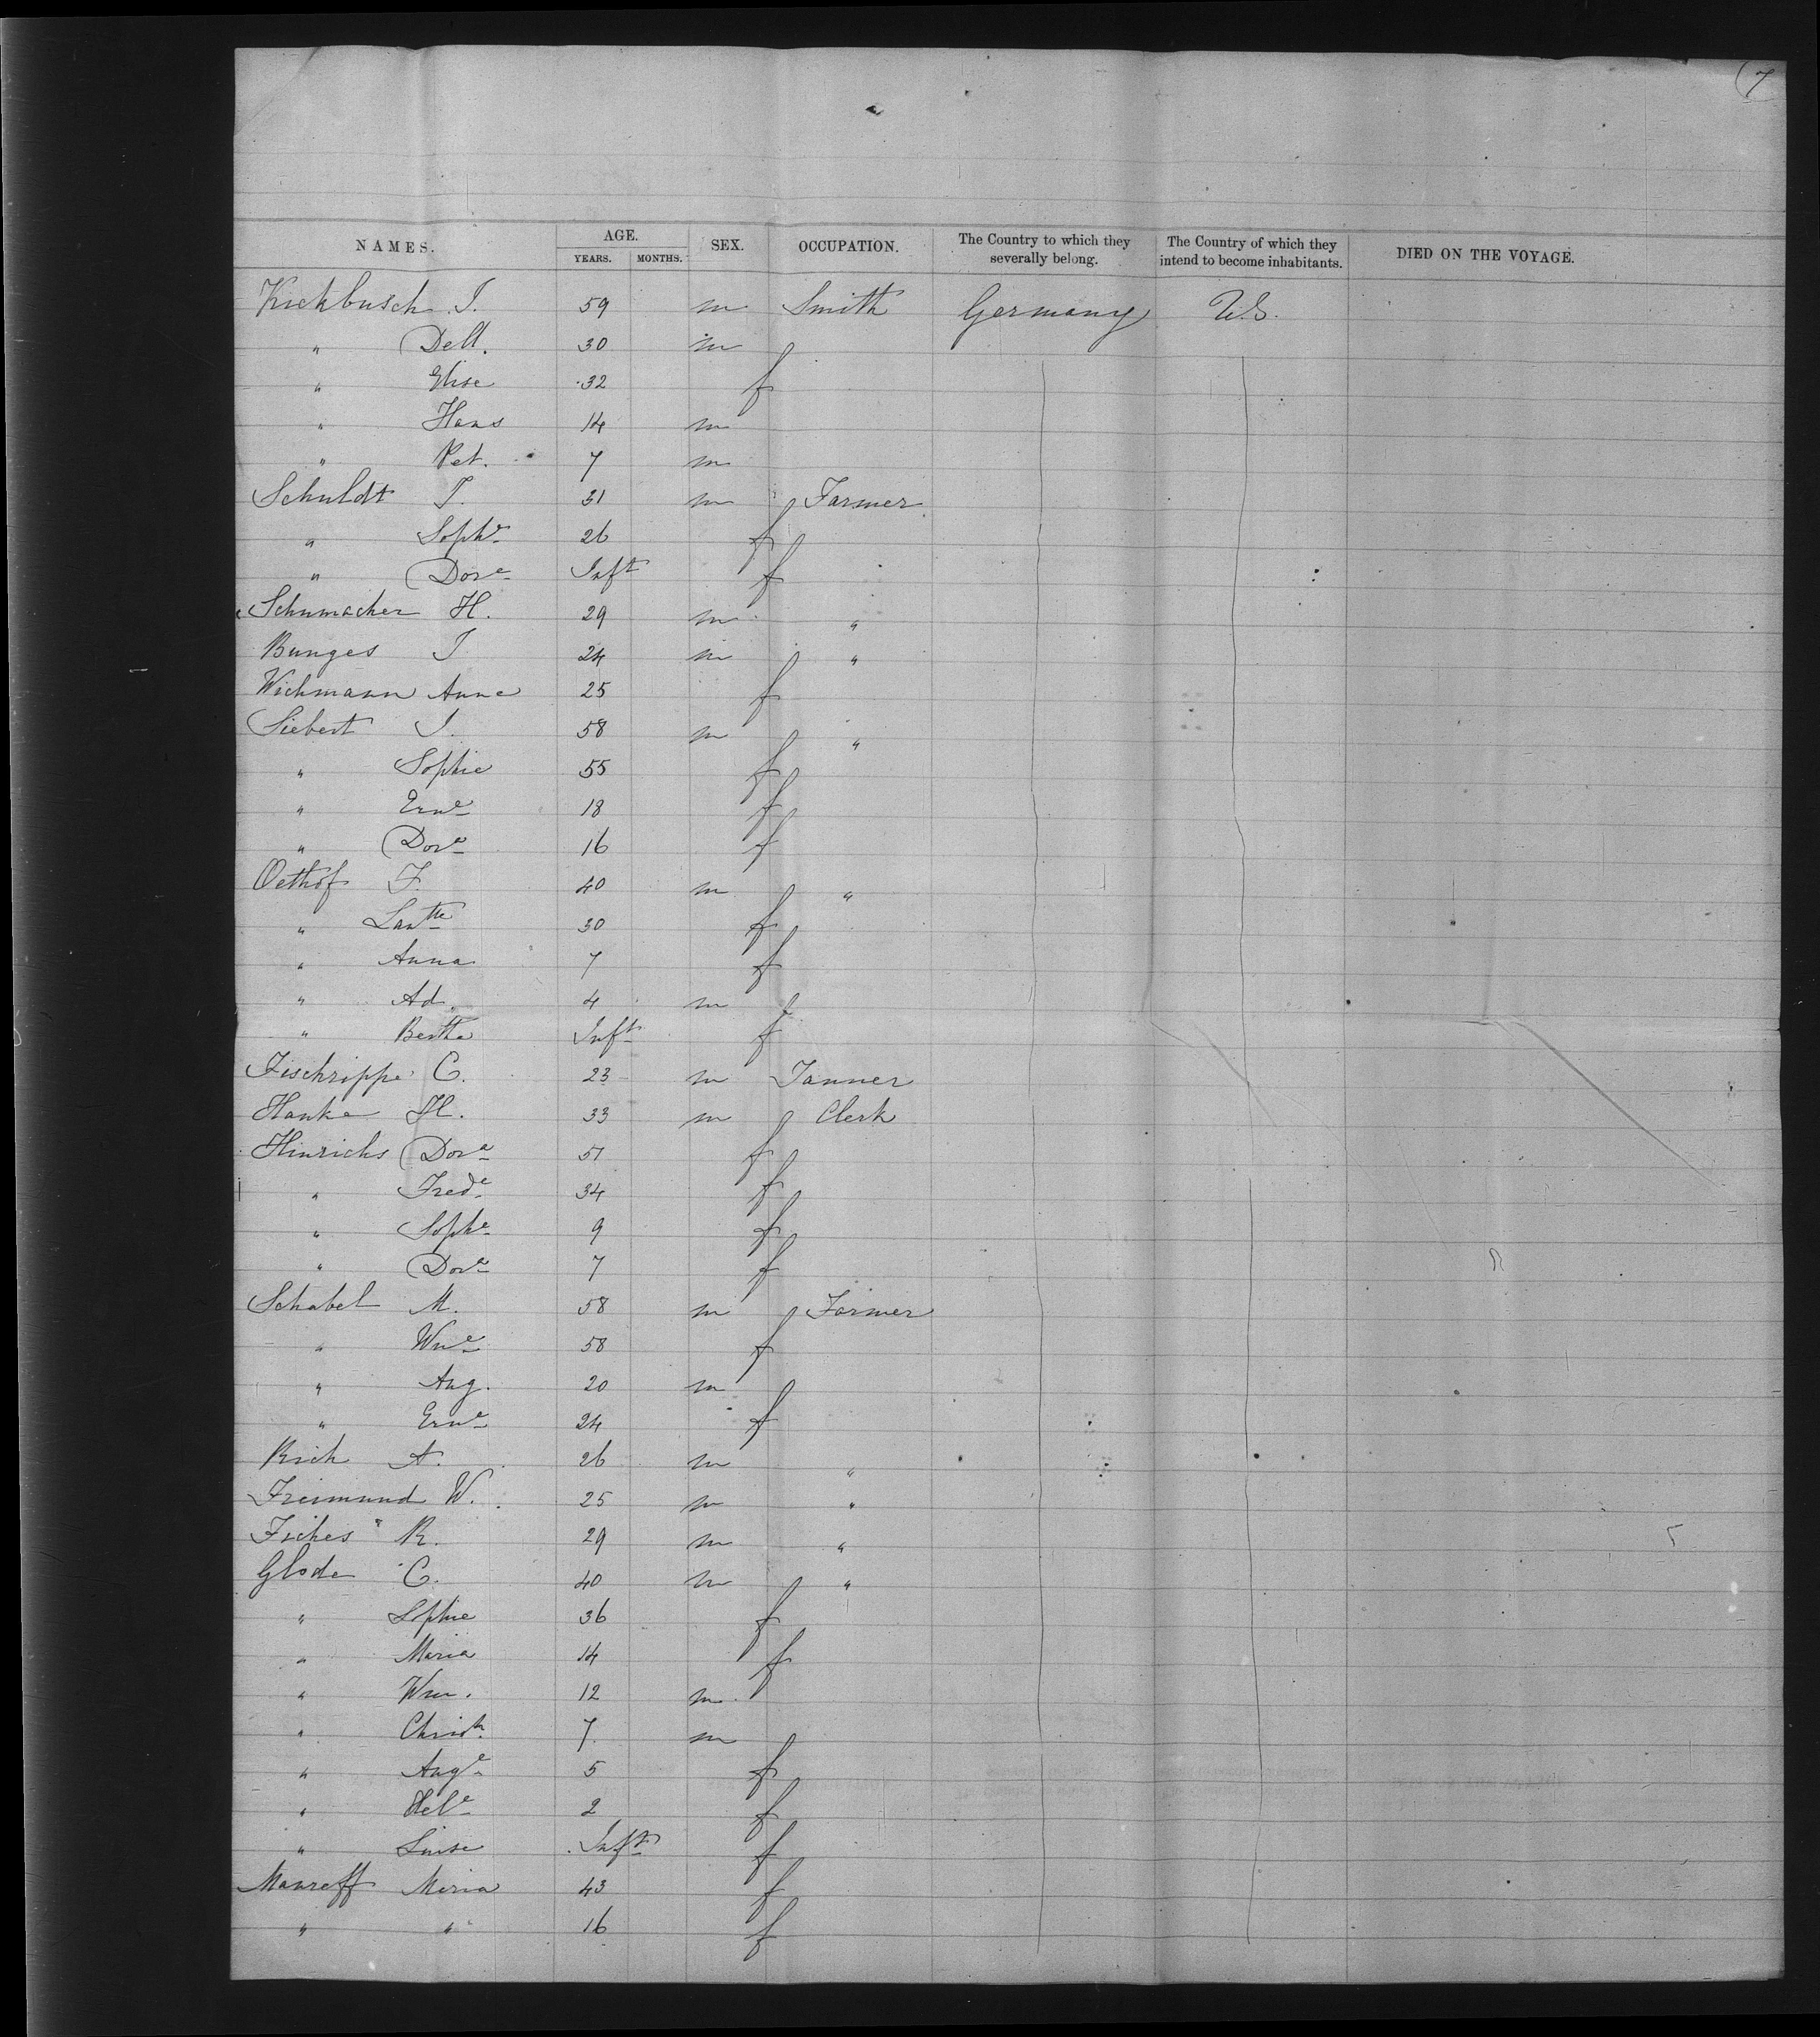 7
NAMES. AGE. SEX. OCCUPATION. The Country to which they severally belong. The Country of which they intend to become inhabitants. DIED ON THE VOYAGE.
YEARS. MONTHS.
Kickbusch J. 59 m Smith Germany U.S.
" Detl. 30 m
" Elise 32 f
" Hans 14 m
" Pet. 7 m
Schuldt J. 31 m Farmer
" Sophe 26 f
" Dore Inft f
Schumacher H. 29 m "
Bunges J 24 m "
Wichmann Anna 25 f
Siebert J. 58 m "
" Sophie 55 f
" Erne 18 f
" Dore 16 f
Oethof F. 40 m "
" 30 f
" Anna 7 f
" Ad. 4 m
" Bertha Inft f
Fischrippe C. 23 m Tanner
Hanke H. 33 m Clerk
Hinrichs Dore 51 f
" Frede 34 f
" Sophe 9 f
" Dore 7 f
Schabel M. 58 m Farmer
" Wne 58 f
" Aug. 20 m
" Erne 24 f
Rich A. 26 m "
Freimund W. 25 m "
Fiches R. 29 m "
Glode C. 40 m "
" Sophie 36 f
" Maria 14 f
" Wm. 12 m
" Christn 7 m
" Auge 5 f
" Hele 2 f
" Luise Inft f
Manreff Maria 43 f
" " 16 f